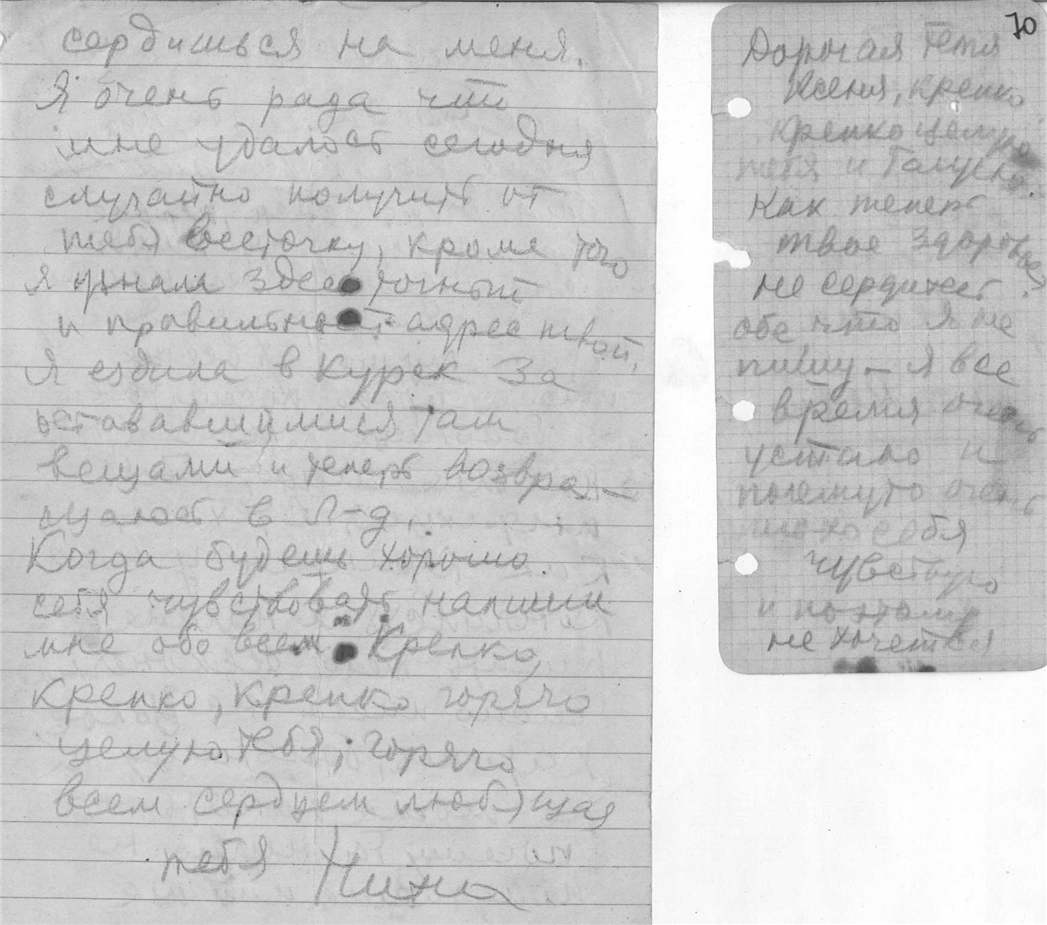 сердишься на меня.
Я очень рада что
мне удалось сегодня
случайно получить от
тебя весточку, кроме того
я узнала здесь точный
и правильный адрес твой,
Я ездила в Курск за
остававшимися там
вещами и теперь возвра-
щаюсь в Л-д.
Когда будешь хорошо
себя чувствовать напиши
мне обо всем. Крепко,
крепко, крепко горячо
целую тебя, горячо
всем сердцем любящая
тебя Нина
70
Дорогая тетя
Ксеня, крепко
крепко целую
тебя и Галуську.
Как теперь
твое здоровье,
не сердитесь
обе, что я не
пишу – я все
время очень
устаю и
почемуто очень
плохо себя
чувствую
и поэтому
не хочется